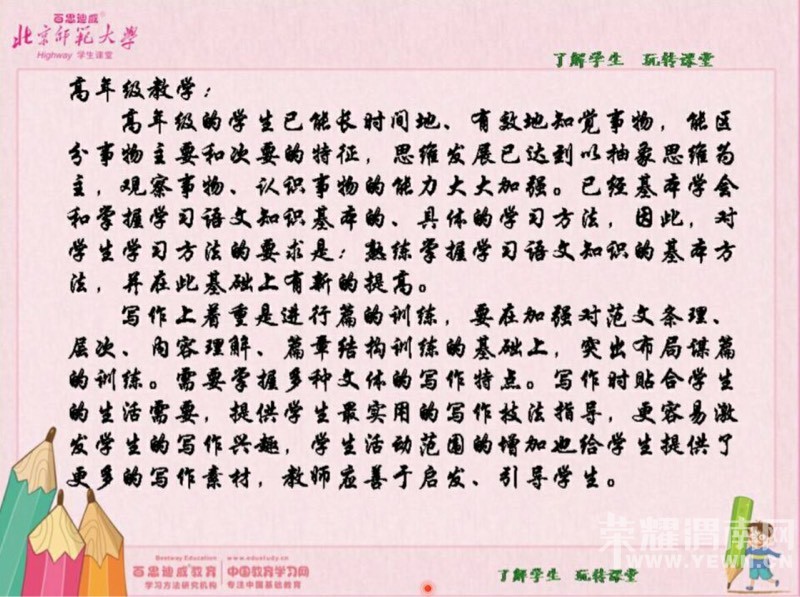 百思迪威
北京师范大学
Highway 学生课堂
了解学生 玩转课堂
高年级教学：
高年级的学生已能长时间地、有效地知觉事物，能区
分事物主要和次要的特征，思维发展已达到以抽象思维为
主，观察事物、认识事物的能力大大加强。已经基本学会
和掌握学习语文知识基本的、具体的学习方法，因此，对
学生学习方法的要求是：熟练掌握学习语文知识的基本方
法，并在此基础上有新的提高。
写作上着重是进行篇的训练，要在加强对范文条理、
层次、内容理解、篇章结构训练的基础上，突出布局谋篇
的训练。需要掌握多种文体的写作特点。写作时贴合学生
的生活需要，提供学生最实用的写作技法指导，更容易激
发学生的写作兴趣，学生活动范围的增加也给学生提供了
更多的写作素材，教师应善于启发、引导学生。
Bestway Education
www.edustudy.cn
百思迪威教育
中国教育学习网
学习方法研究机构
专注中国基础教育
了解学生 玩转课堂
荣耀渭南网
WWW.YEWN.CN